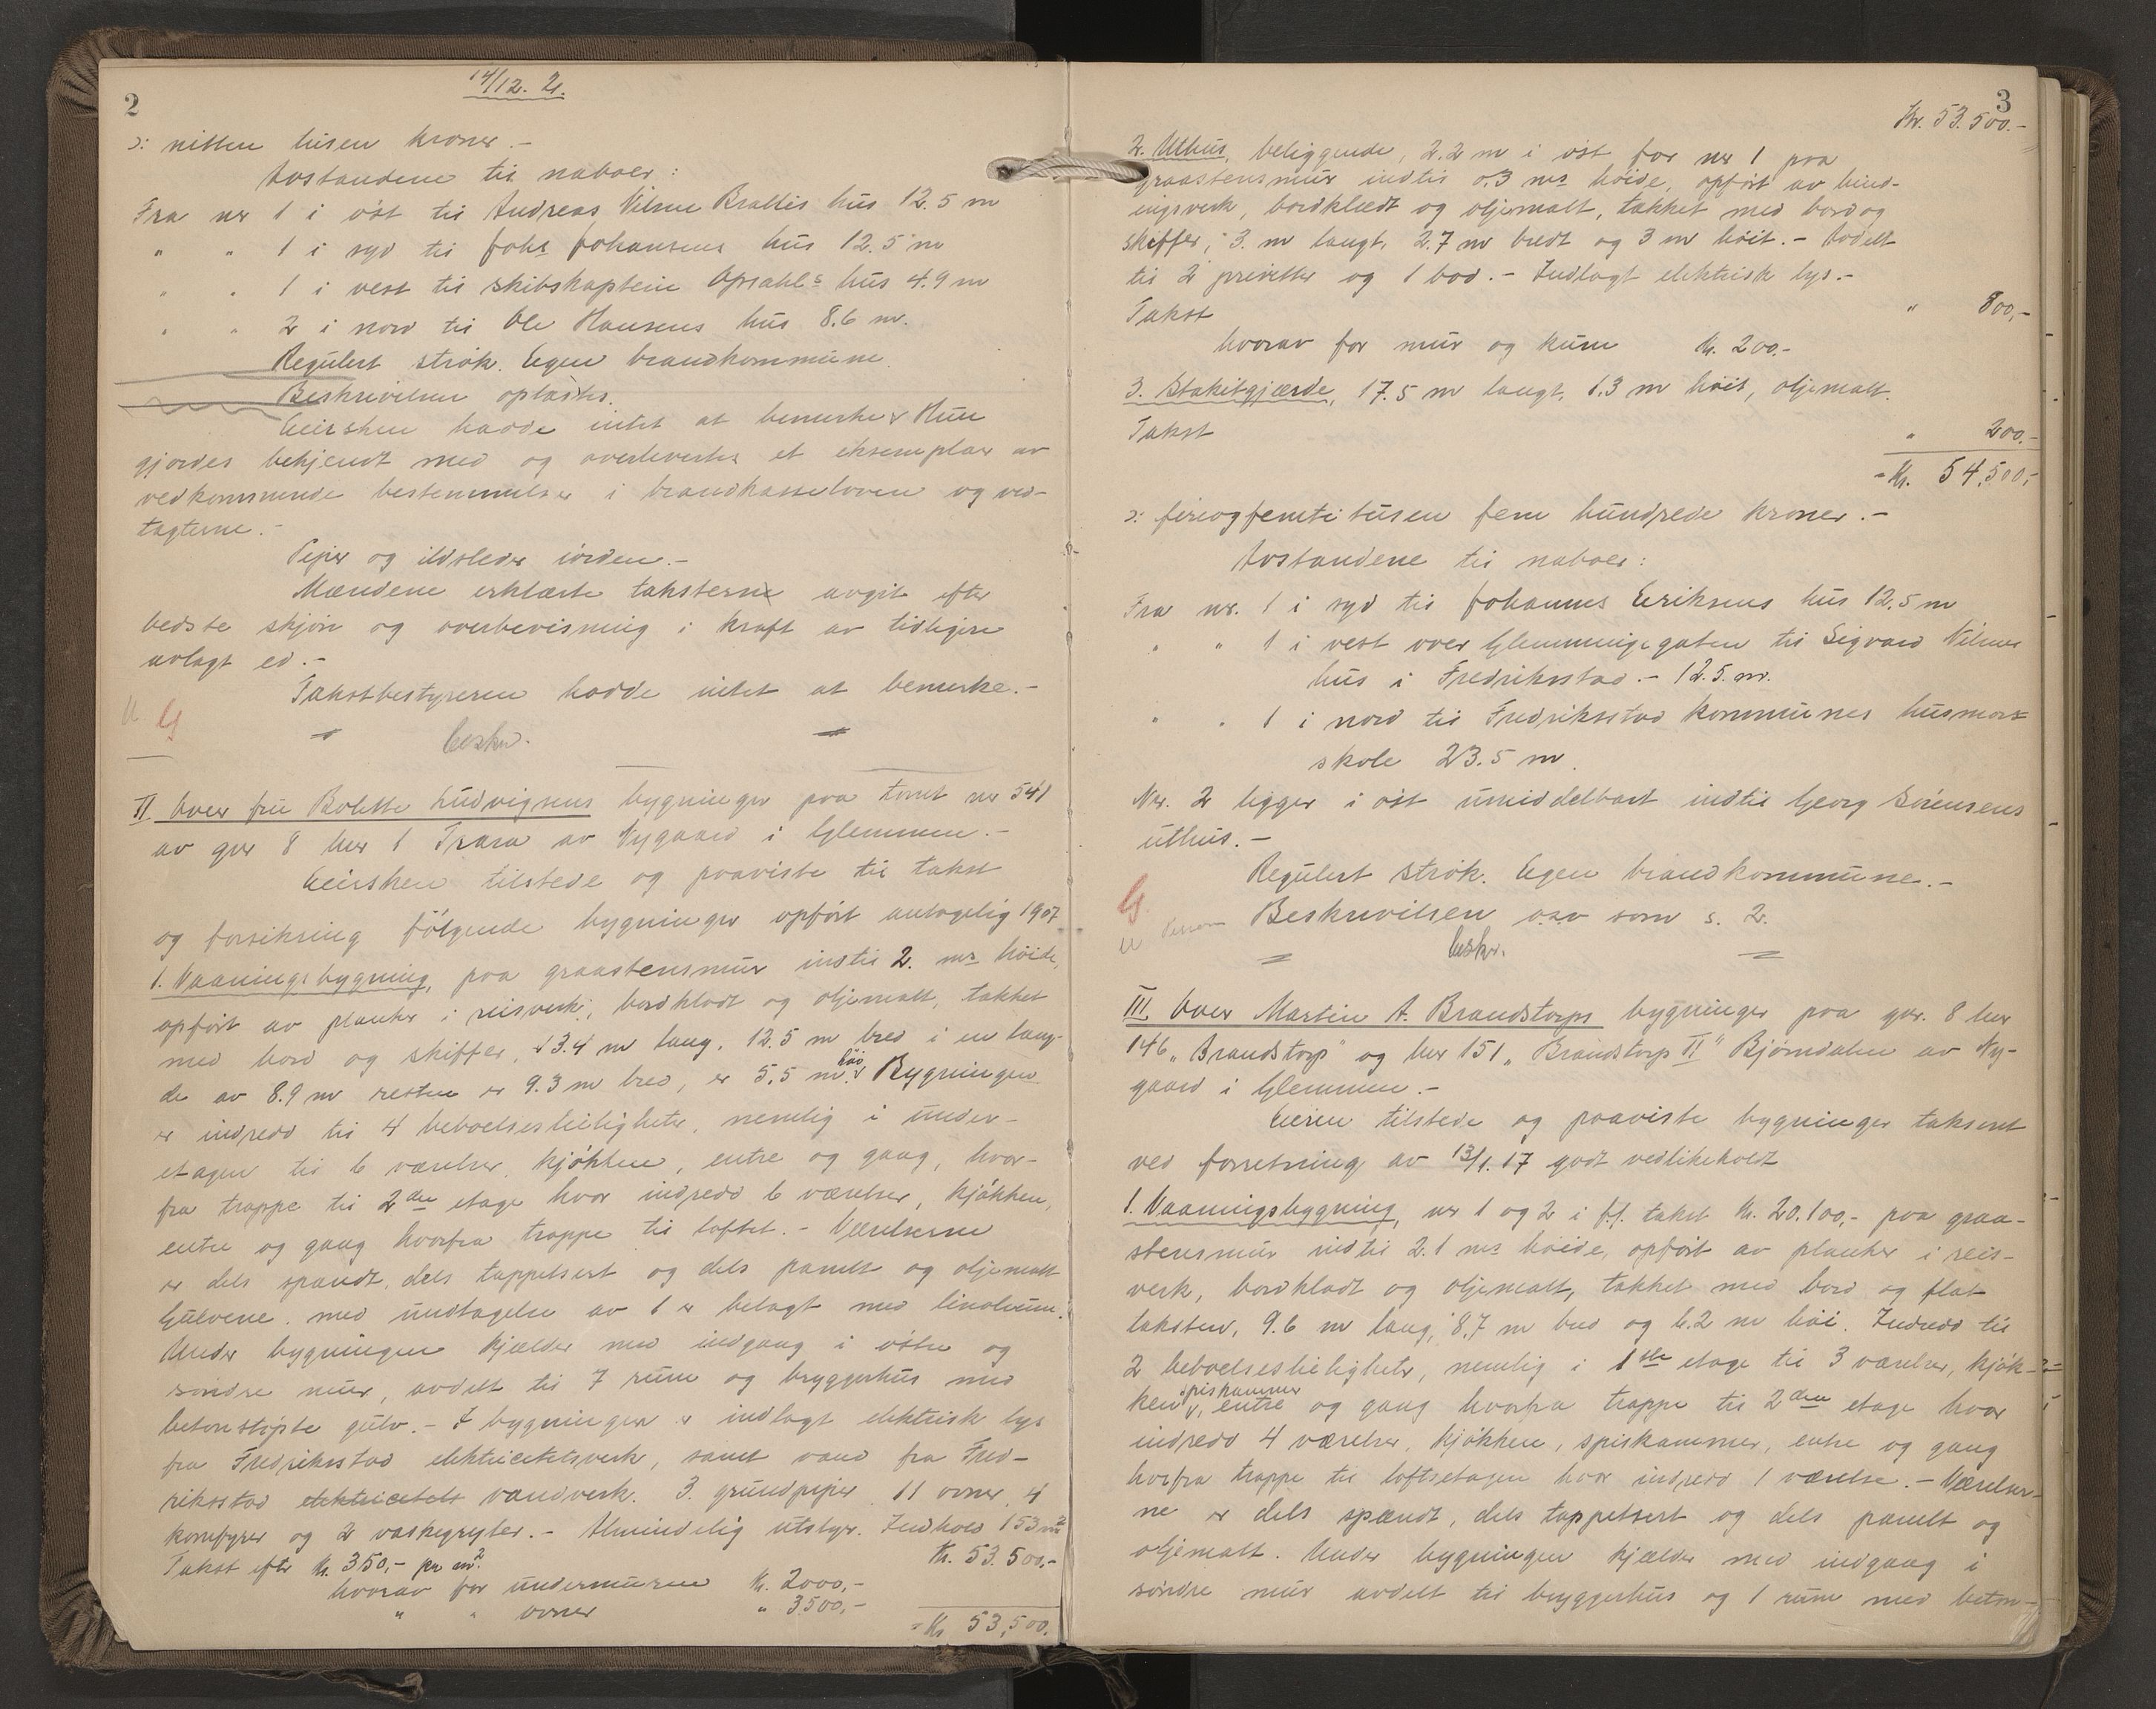 2
14/12. 21.
ɔ: nitten tusen kroner.-
Avstandene til naboer:
Fra nr 1 i øst til Andreas Nilsen Brattlis hus 12.5 m
" " 1 i syd til Johs Johansens hus 12.5 m
" " 1 i vest til skibskaptein Opsahls hus 4.9 m
" " 2 i nord til Ole Hansens hus 8.6 m.
Regulert strøk. Egen brandkommune.
Beskrivelsen oplæstes.
Eiersken hadde intet at bemerke. Hun
gjordes bekjendt med og overlevertes et eksemplar av
vedkommende bestemmelser i brandkasseloven og ved-
tægterne.-
Piper og ildsteder iorden.-
Mændene erklærte taksterne avgit efter
bedste skjøn og overbevisning i kraft av tidligere
avlagt ed.-
Takstbestyreren hadde intet at bemerke.-
G
Beskr.
II Over fru Bolette Ludvigsens bygninger paa tomt nr 541
av gnr 8 bnr 1 Trara av Nygaard i Glemmen.-
Eiersken tilstede og paaviste til takst
og forsikring følgende bygninger opført antagelig 1907
1. Vaaningsbygning, paa graastensmur indtil 2. mrs høide,
opført av planker i reisverk, bordklædt og oljemalt, tækket
med bord og skiffer, 13.4 m lang, 12.5 m bred i en læng-
de av 8.9 m resten er 9.3 m bred, er 5.5 m høi. Bygningen
er indredd til 4 beboelsesleiligheter, nemlig i under-
etagen til 6 værelser, kjøkken, entre og gang, hvor-
fra trappe til 2den etage hvor indredd 6 værelser, kjøkken,
entre og gang hvorfra trappe til loftet.- Værelserne
er dels spændt, dels tappetsert og dels panelt og oljemalt
Gulvene med undtagelse av 1 er belagt med linoleum.
Under bygningen kjælder med indgang i østre og
søndre mur, avdelt til 7 rum og bryggerhus med
betonstøpte gulv.- I bygningen er indlagt elektrisk lys
fra Fredriksstad elektricitetsverk, samt vand fra Fred-
riksstad elektricitets vandverk. 3. grundpiper, 11 ovner, 4
komfyrer og 2 vaskegryter.- Almindelig utstyr. Indhold 153 m2
Takst efter kr. 350,- pr m2. Kr. 53.500.-
hvorav for undermuren Kr. 2000,-
" " ovner " 3500,-
= Kr. 53,500.
3
Kr. 53.500.-
2. Uthus, beliggende, 2.2 m i øst for nr 1 paa
graastensmur indtil 0.3 mrs høide, opført av bind-
ingsverk, bordklædt og oljemalt, tækket med bord og
skiffer, 3. m langt, 2.7 m bredt og 3 m høit.- Avdelt
til 2 privetter og 1 bod.- Indlagt elektrisk lys.-
Takst " 800,-
hvorav for mur og kum Kr. 200.-
3. Stakitgjærde, 17.5 m langt, 1.3 m høit, oljemalt.
Takst " 200.-
= Kr. 54,500,-
ɔ: fireogfemti tusen fem hundrede kroner.-
Avstandene til naboer:
Fra nr. 1 i syd til Johannes Eriksens hus 12.5 m
" " 1 i vest over Glemmingegaten til Sigvard Nilsens
hus i Fredriksstad.- 12.5. m.
" " 1 i nord til Fredriksstad kommunes husmors-
skole 23.5 m.
Nr. 2 ligger i øst umiddelbart indtil Georg Sørensens
uthus.-
Regulert strøk. Egen brandkommune.-
G
Beskrivelsen osv som s. 2.
Beskr.
III. Over Martin A. Brandstorps bygninger paa gnr. 8 bnr
146 „Brandstorp" og bnr 151 „Brandstorp II" Bjørndalen av Ny-
gaard i Glemmen.-
Eieren tilstede og paaviste bygninger taksert
ved forretning av 13/1.17 godt vedlikeholdt
1. Vaaningsbygning, nr 1 og 2 i f.f. takst Kr. 20.100,- paa graa-
stensmur indtil 2.1 mrs høide, opført av planker i reis-
verk, bordklædt og oljemalt, tækket med bord og flat
taksten, 9.6 m lang, 8.7 m bred og 6.2 m høi. Indredd til
2 beboelsesleiligheter, nemlig i 1ste etage til 3 værelser, kjøk-
ken, spiskammer, entre og gang hvorfra trappe til 2den etage hvor
indredd 4 værelser, kjøkken, spiskammer, entre og gang
hvorfra trappe til loftsetagen hvor indredd 1 værelse.- Værelser-
ne er dels spændt, dels tappetsert og dels panelt og
oljemalt. Under bygningen kjælder med indgang i
søndre mur avdelt til bryggerhus og 1 rum med beton-